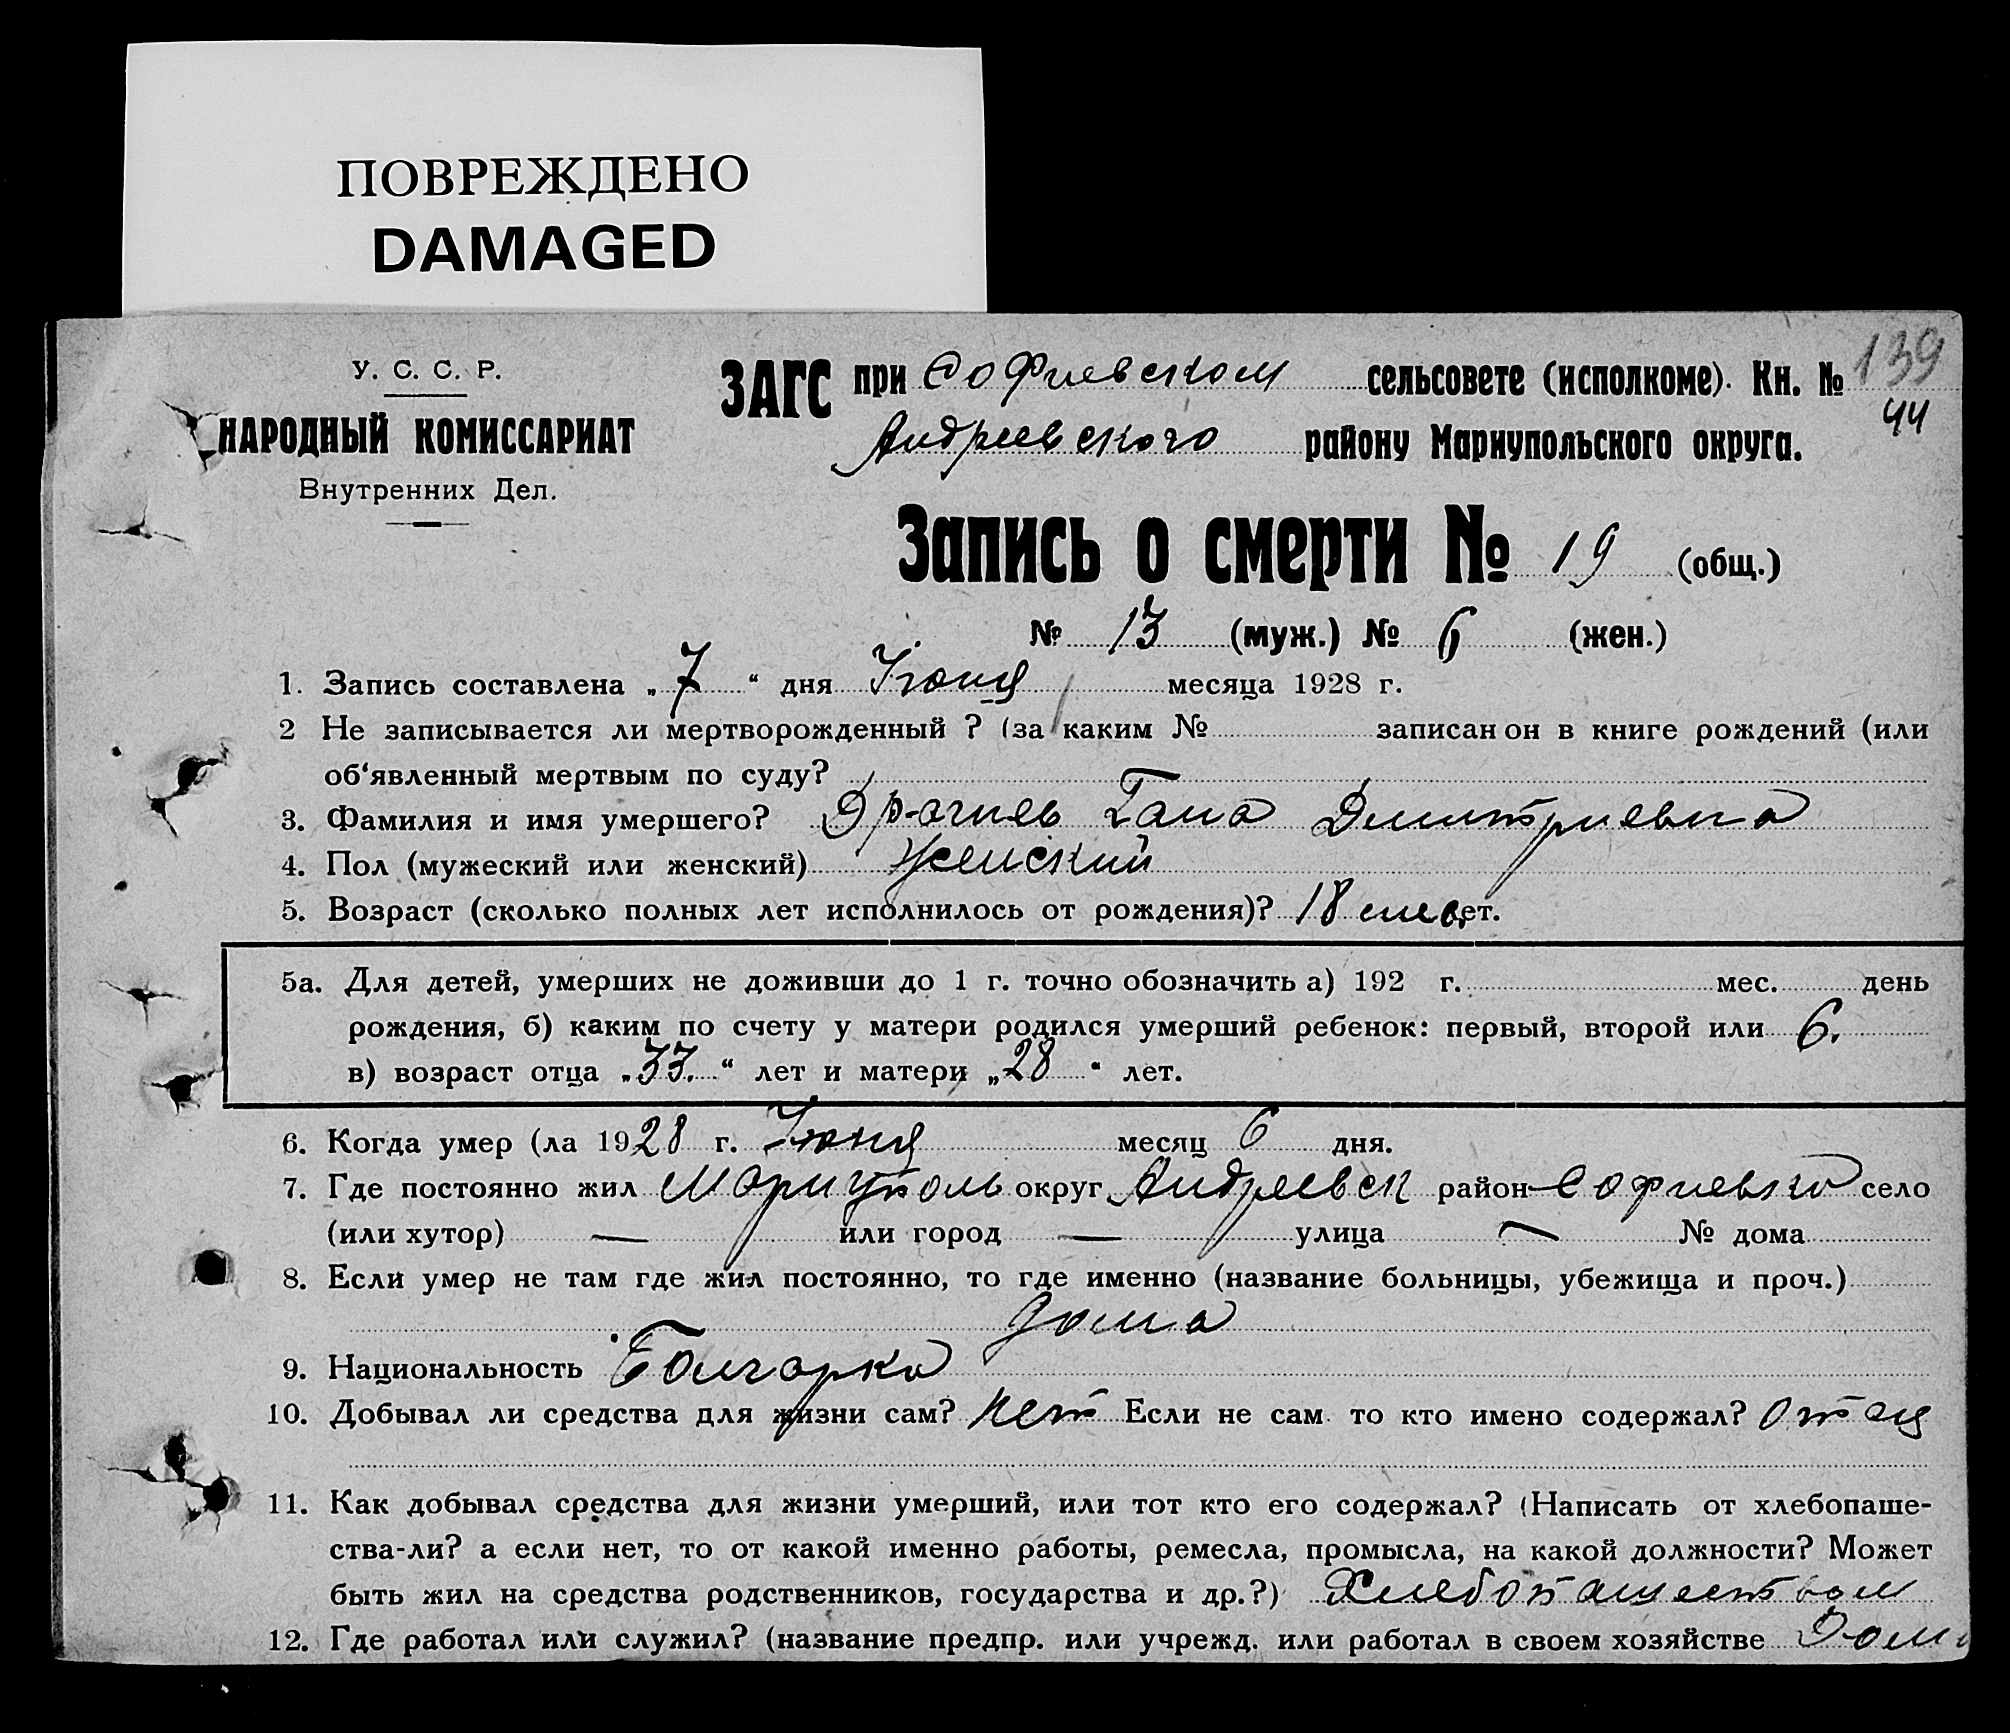 ПОВРЕЖДЕНО
DAMAGED
У. С. С. Р.
НАРОДНЫЙ КОМИССАРИАТ
Внутренних Дел.
ЗАГС при Софиевском сельсовете (исполкоме). Кн. № 139
44
Андреевского району Мариупольского округа.
Запись о смерти № 19 (общ.)
№ 13 (муж.) № 6 (жен.)
1. Запись составлена „ 7 “ дня Июня месяца 1928 г.
2 Не записывается ли мертворожденный ? (за каким № записан он в книге рождений (или
об‘явленный мертвым по суду?
3. Фамилия и имя умершего? Драгнев Гана Дмитриевна
4. Пол (мужеский или женский) Женский
5. Возраст (сколько полных лет исполнилось от рождения)? 18 лет.
5а. Для детей, умерших не доживши до 1 г. точно обозначить а) 192 г. мес. день
рождения, б) каким по счету у матери родился умерший ребенок: первый, второй или 6.
в) возраст отца „ 33. “ лет и матери „ 28 “ лет.
6. Когда умер (ла 1928 г. Июня месяц 6 дня.
7. Где постоянно жил Мариуполь округ Андреевск район Софиевка село
(или хутор) — или город — улица — № дома
8. Если умер не там где жил постоянно, то где именно (название больницы, убежища и проч.)
дома
9. Национальность Болгарка
10. Добывал ли средства для жизни сам? Нет Если не сам то кто имено содержал? Отец
11. Как добывал средства для жизни умерший, или тот кто его содержал? (Написать от хлебопаше-
ства-ли? а если нет, то от какой именно работы, ремесла, промысла, на какой должности? Может
быть жил на средства родственников, государства и др.?) Хлебопашеством
12. Где работал или служил? (название предпр. или учрежд. или работал в своем хозяйстве Дома